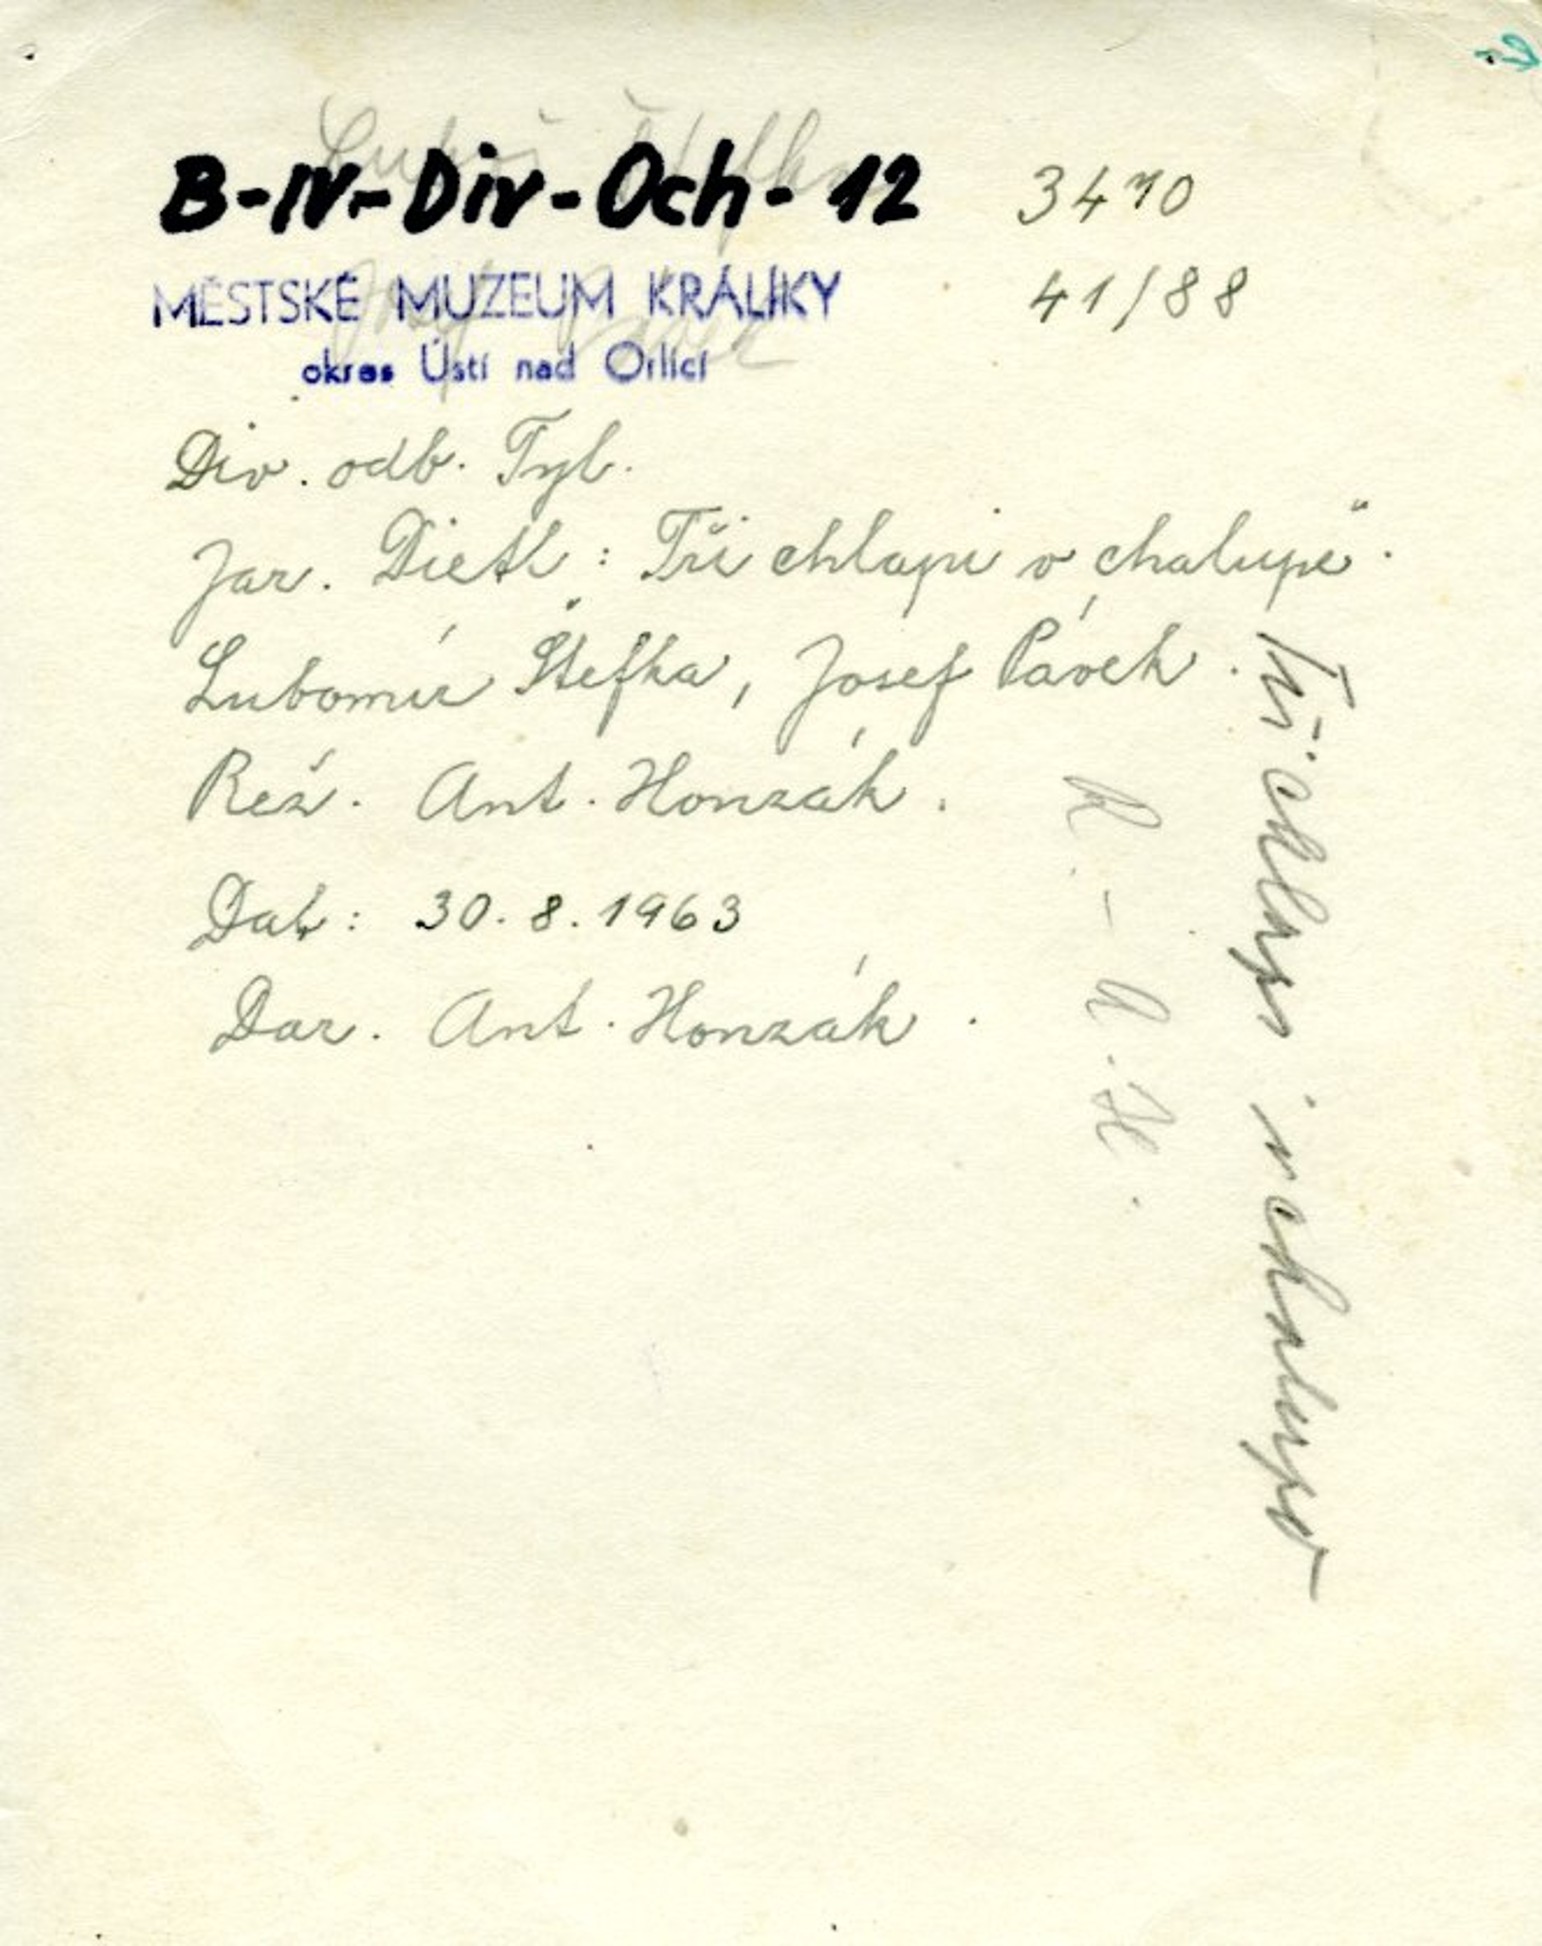 B-IV-Div-Och-12 3470
MĚSTSKÉ MUZEUM KRÁLÍKY 41/88
okres Ústí nad Orlicí
Div. odb. Tyl.
Jar. Dietl: Tři chlapi v chalupě.
Lubomír Štefka, Josef Pávek.
Rež. Ant. Honzák.
Dat: 30.8.1963
Dar. Ant. Honzák.
R. - A. H.
Tři chlapi v chalupě